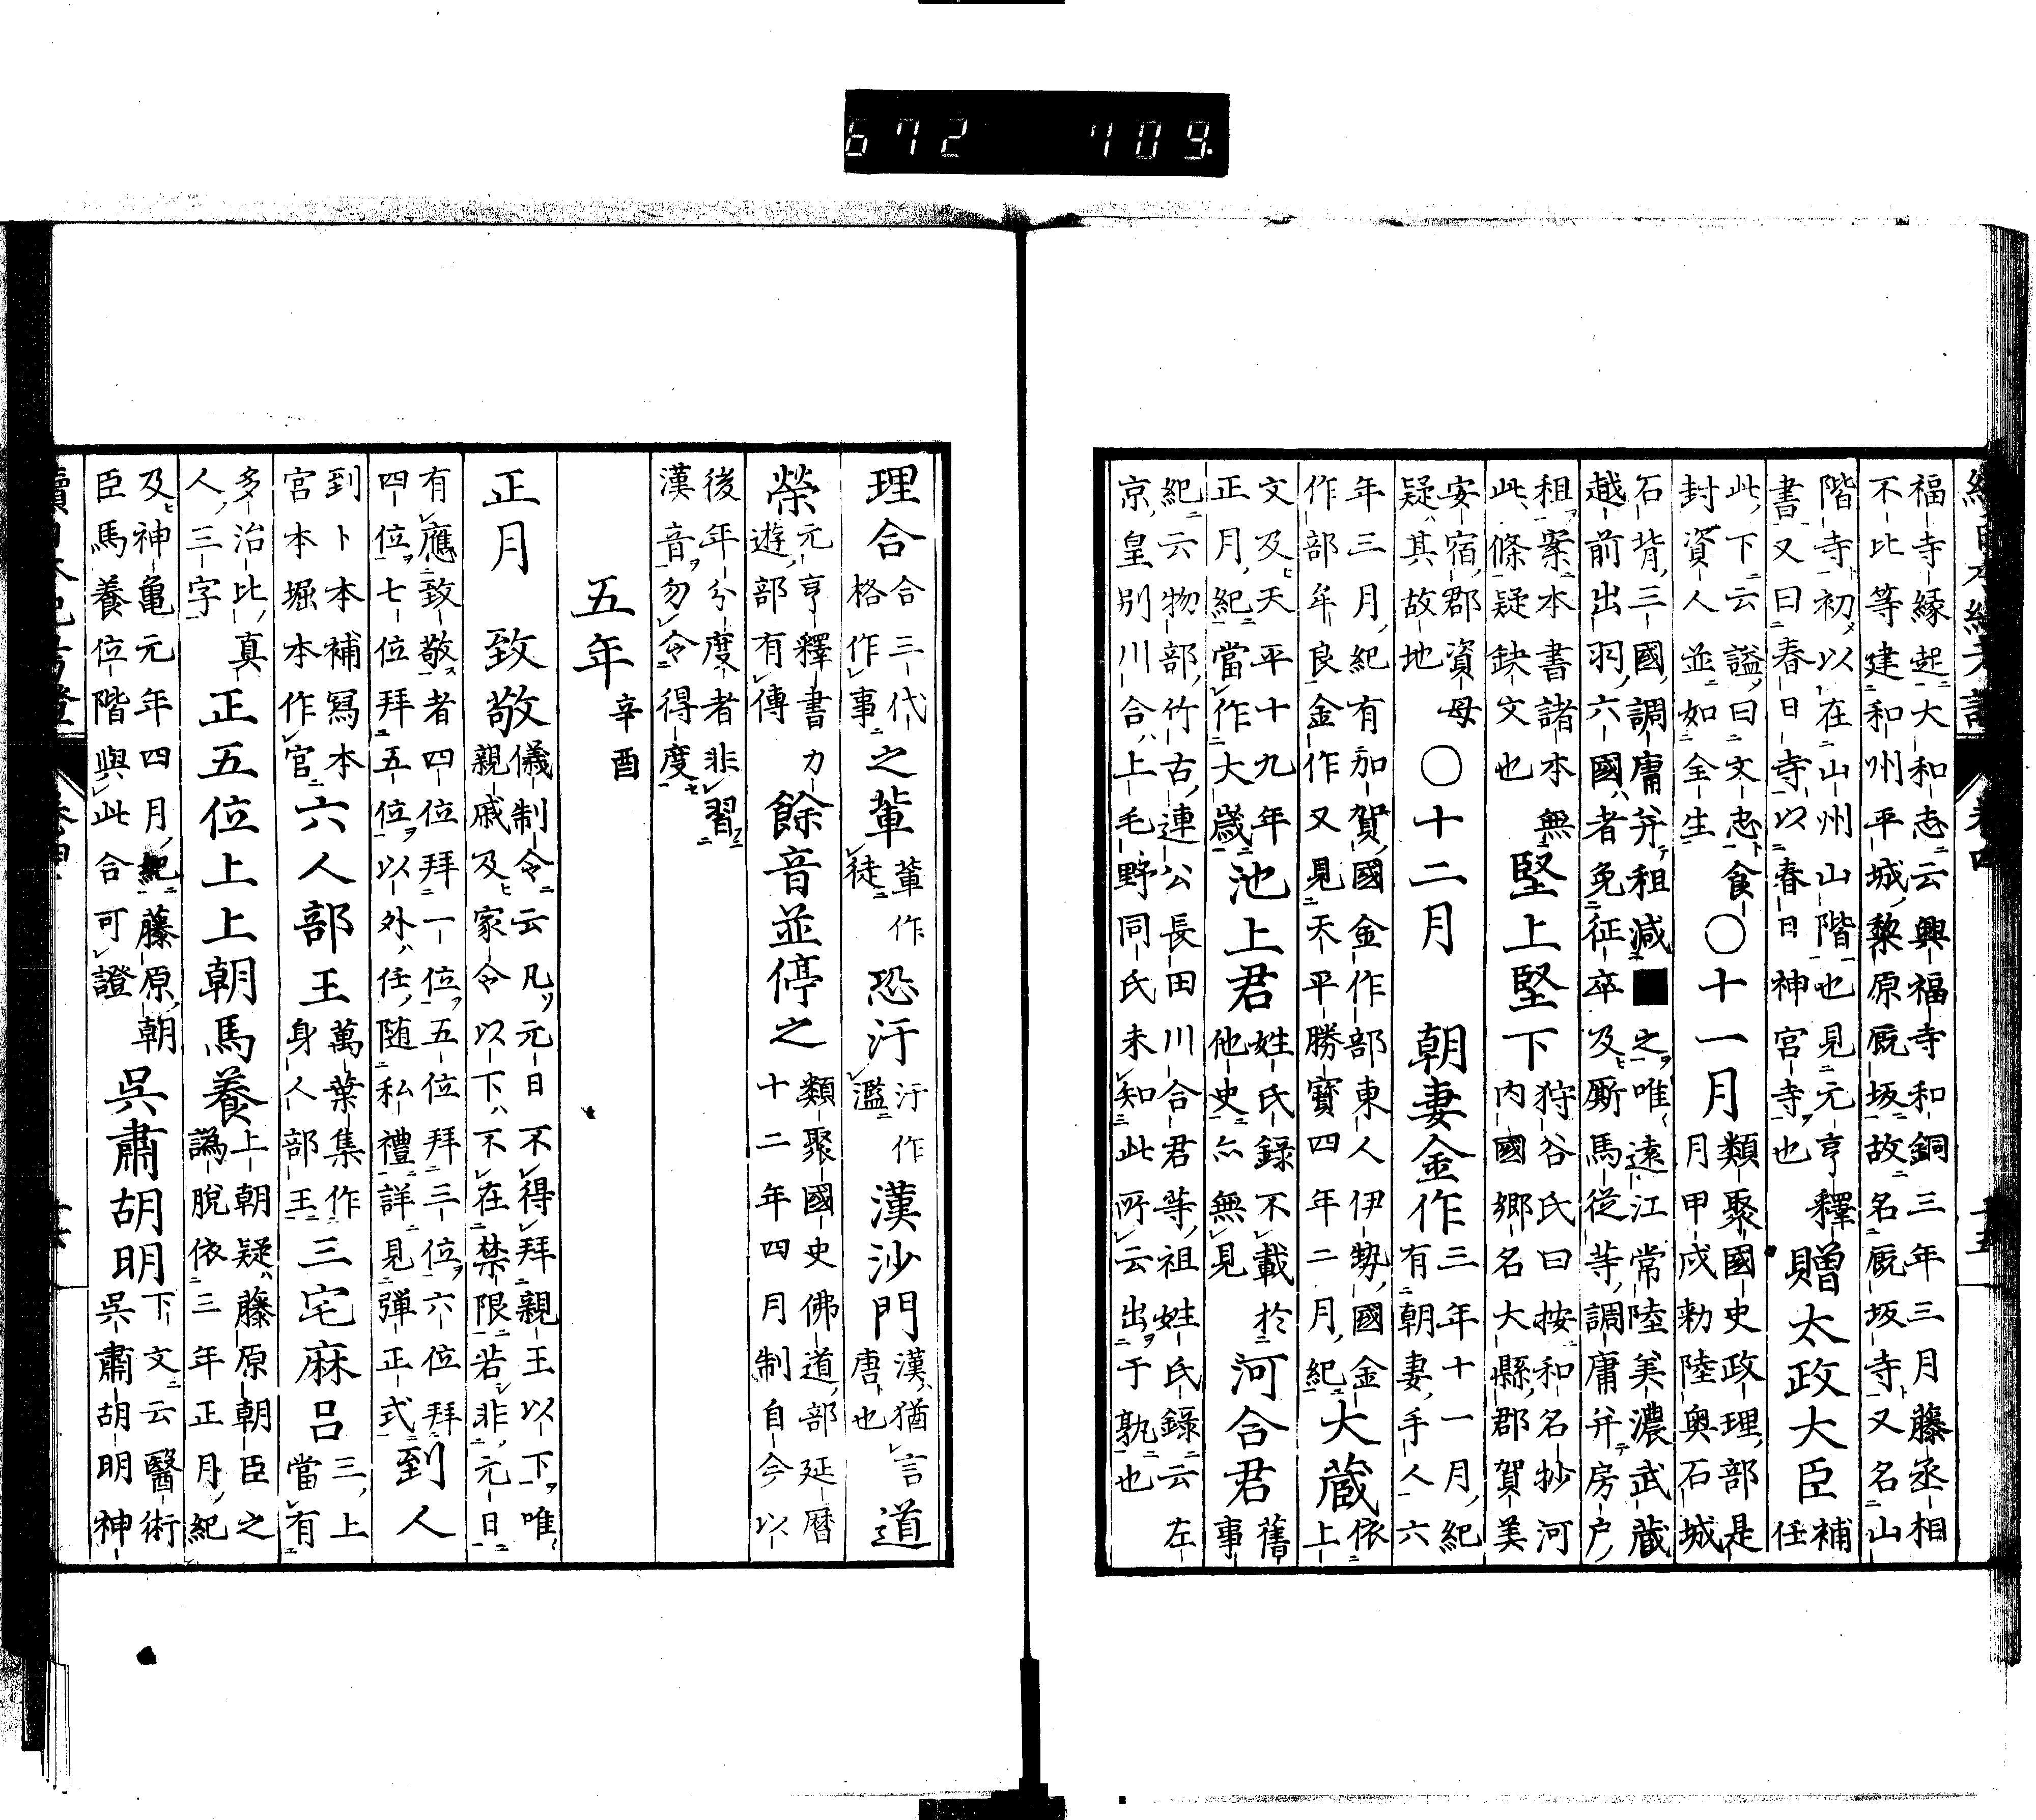 672 709.
福寺緣起大和志云興福寺和銅三年三月藤丞相
不比等建和州平城黎原厩坂故名厩坂寺又名山
階寺初以在山州山階也見元亨釋
書又曰春日寺以春日神宮寺也
贈太政大臣
補任
此下云謚曰文忠食
封資人並如全生
○十一月
類聚國史政理部是
月甲戌勅陸奧石城
石背三國調庸并租減■之唯遠江常陸美濃武藏
越前出羽六國者免征卒及厮馬從等調庸并房戶
租案本書諸本無
此條疑缺文也
堅上堅下
狩谷氏曰按和名抄河
內國鄉名大縣郡賀美
安宿郡資母
疑其故地
○十二月
朝妻金作
三年十一月紀
有朝妻手人六
年三月紀有加賀國金作部東人伊勢國金
作部牟良金作又見天平勝寶四年二月紀
大蔵
依上
文及天平十九年
正月紀當作大歲
池上君
姓氏錄不載於
他史亦無見
河合君
舊事
紀云物部竹古連公長田川合君等祖姓氏錄云左
京皇別川合上毛野同氏未知此所云出于孰也
理合
合三代
格作事
之輩
輩作
徒
恐汙
汙作
濫
漢沙門
漢猶言
唐也
道
榮
元亨釋書力
遊部有傳
餘音並停之
類聚國史佛道部延曆
十二年四月制自今以
後年分度者非習
漢音勿令得度
五年
辛酉
正月
致敬
儀制令云凡元日不得拜親王以下唯
親戚及家令以下不在禁限若非元日
有應致敬者四位拜一位五位拜三位六位拜
四位七位拜五位以外任随私禮詳見彈正式
到人
到卜本補寫本
宮本堀本作官
六人部王
萬葉集作
身人部王
三宅麻呂
三上
當有
多治比真
人三字
正五位上上朝馬養
上朝疑藤原朝臣之
譌脫依三年正月紀
及神亀元年四月紀藤原朝
臣馬養位階與此合可證
吳肅胡明
下文云醫術
吳肅胡明神